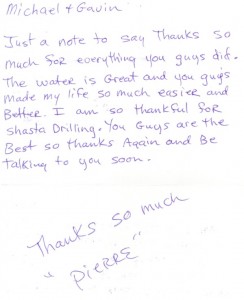 Michael + Gavin
Just a note to say Thanks so
much for everything you guys did.
The water is Great and you guys
made my life so much easier and
Better. I am so thankful for
shasta Drilling. You Guys are the
Best so thanks Again and Be
talking to you soon.
Thanks so much
"PiERRE"